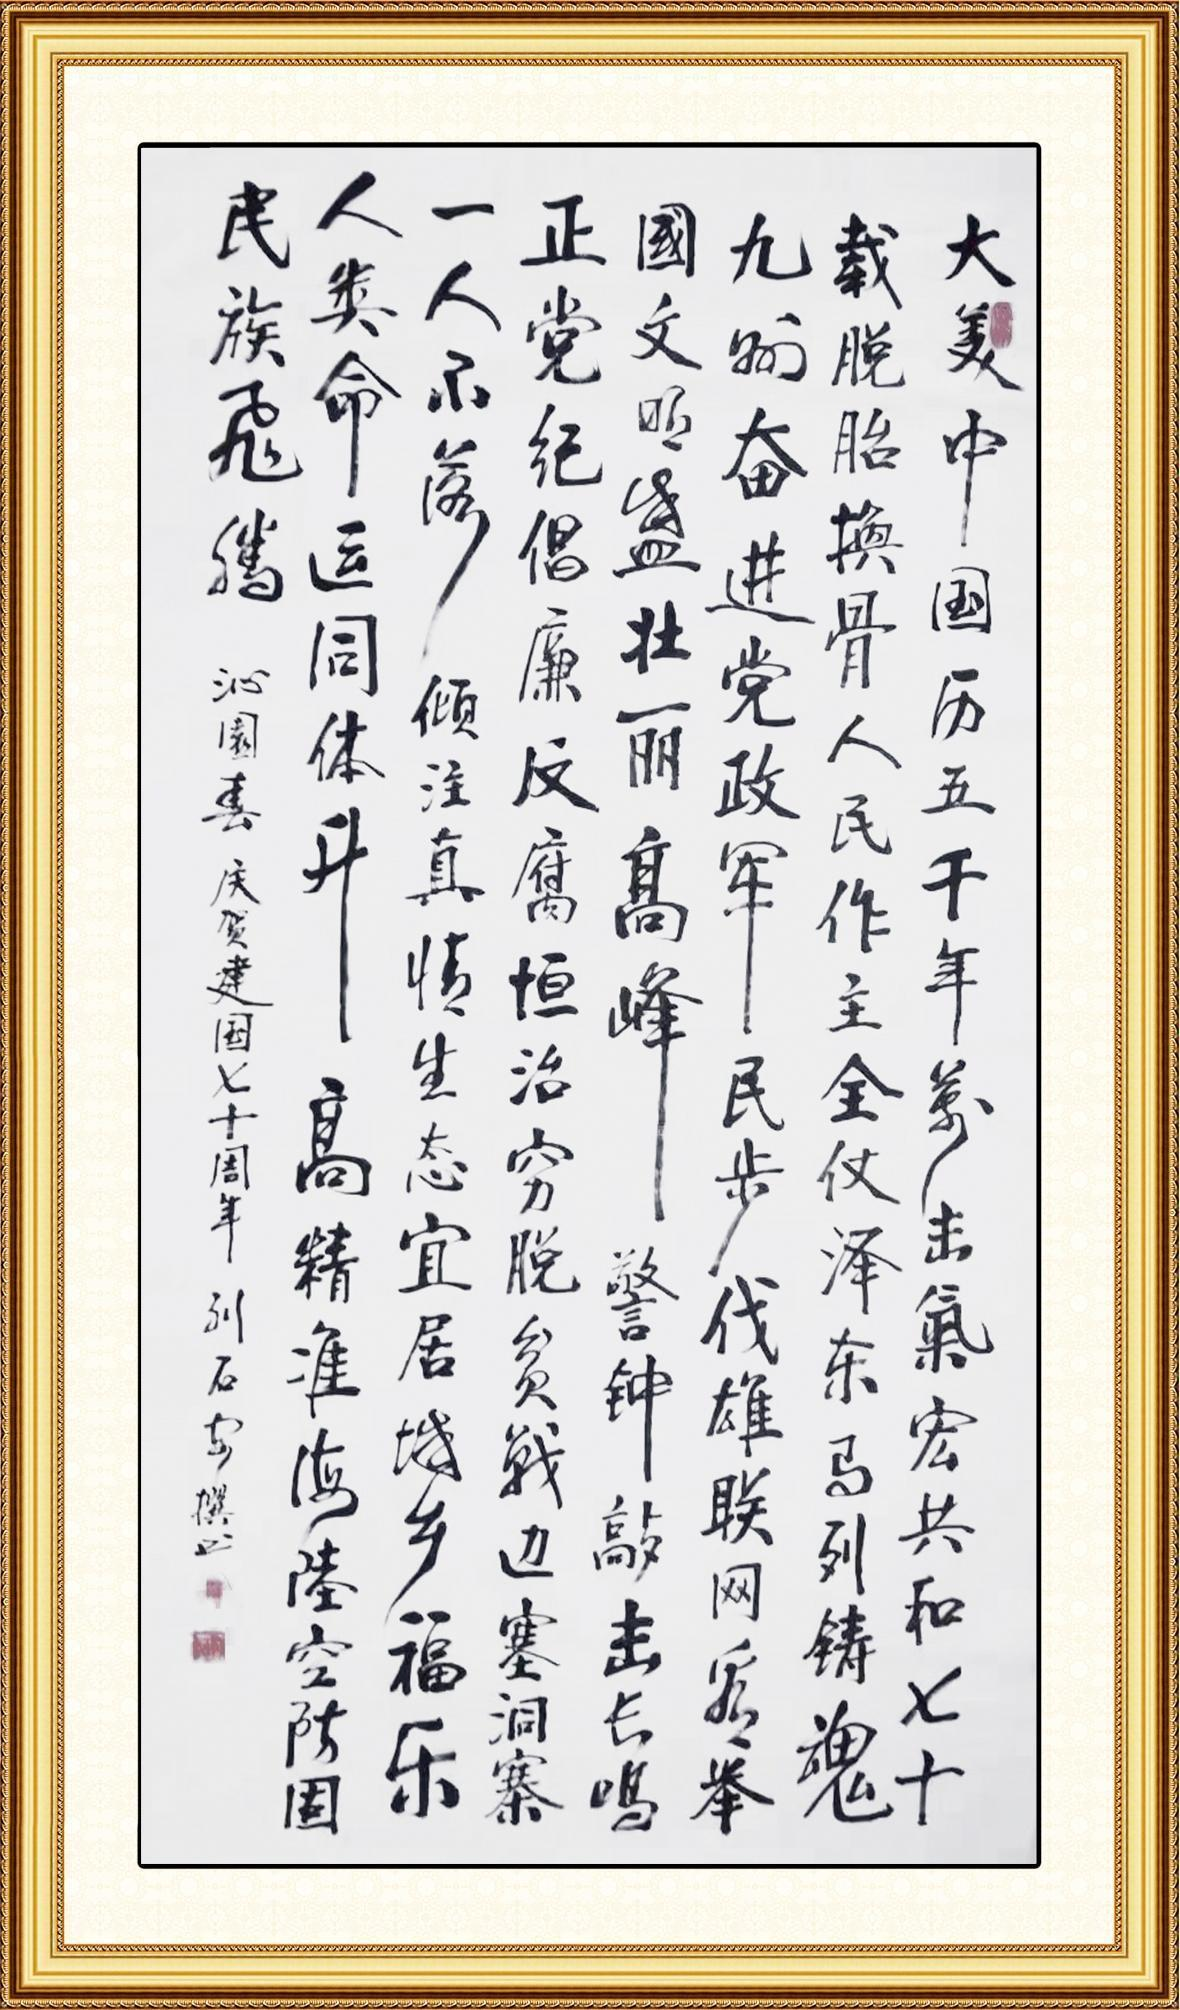 大美中国历五千年万击氣宏共和七十
载脱胎換骨人民作主全仗泽东马列铸魂
九州奋进党政军民步伐雄联网群举
國文明盛壮丽高峰警钟敲击长鸣
正党纪倡廉反腐恒治穷脱贫战边塞洞寨
一人不落倾注真情生态宜居城乡福乐
人类命运同体升高精准海陸空防固
民族飛腾
沁園春 庆贺建国七十周年 列石 撰书